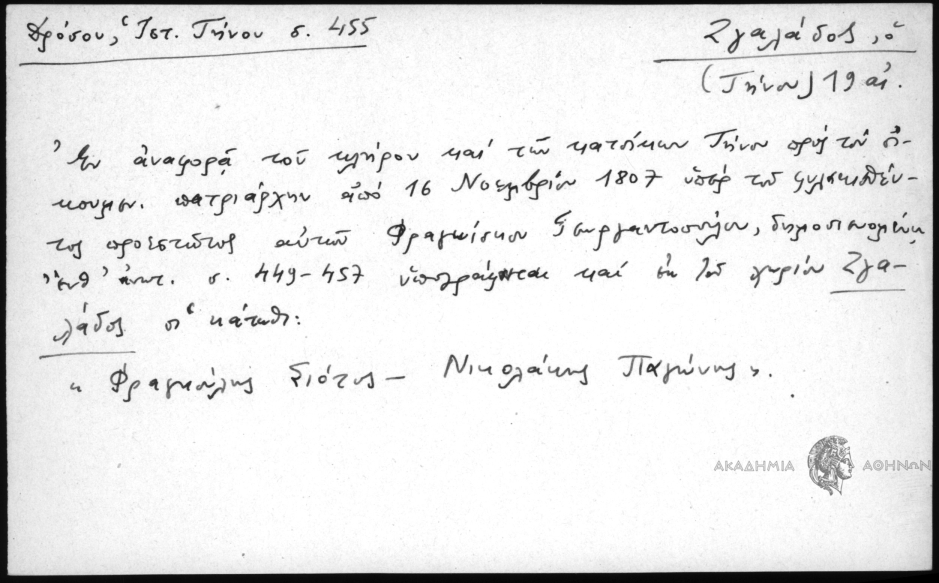 Δρόσου, Ἱστ. Τήνου σ. 455
Ζγαλάδος, ὁ
(Τήνου) 19 αἰ.
Ἐν ἀναφορᾷ τοῦ κλήρου καί τῶν κατοίκων Τήνου πρός τόν οἰ-
κουμεν. πατριάρχην ἀπό 16 Νοεμβρίου 1807 ὑπέρ τοῦ φυλακισθέν-
τος προεστῶτος αὐτῶν Φραγκίσκου Γεωργαντοπούλου,
σ. 449-457 ὑπογράφεται καί ἐκ τοῦ χωρίου Ζγα-
λάδος οἱ κάτωθι:
« Φραγκούλης Σιότος — Νικολάκης Παγώνης ».
ΑΚΑΔΗΜΙΑ ΑΘΗΝΩΝ